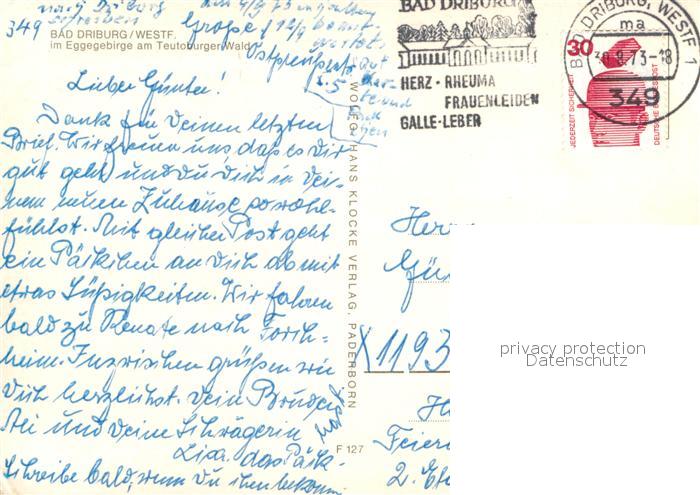 349
BAD DRIBURG/WESTF.
im Eggegebirge am Teutoburger Wald
Lieber Günter!
Dank für Deinen letzten
Brief. Wir freuen uns, daß es Dir
gut geht und Du Dich in Dei-
nem neuen Zuhause so wohl-
fühlst. Mit gleicher Post geht
ein Päckchen an Dich ab mit
etwas Süßigkeiten. Wir fahren
bald zu Renate nach Forch-
heim. Inzwischen grüßen wir
Dich herzlichst. Dein Bruder
und Deine Schwägerin
Lisa. das Päck-
Schreibe bald, wenn Du
WOLFG. HANS KLOCKE VERLAG, PADERBORN
F 127
BAD DRIBURG
HERZ · RHEUMA
FRAUENLEIDEN
GALLE · LEBER
BAD DRIBURG, WESTF. 1
ma
73-18
349
30
JEDERZEIT SICHERHEIT
DEUTSCHE BUNDESPOST
Her
Gün
X 1193
H
Feier
2. Et
privacy protection
Datenschutz